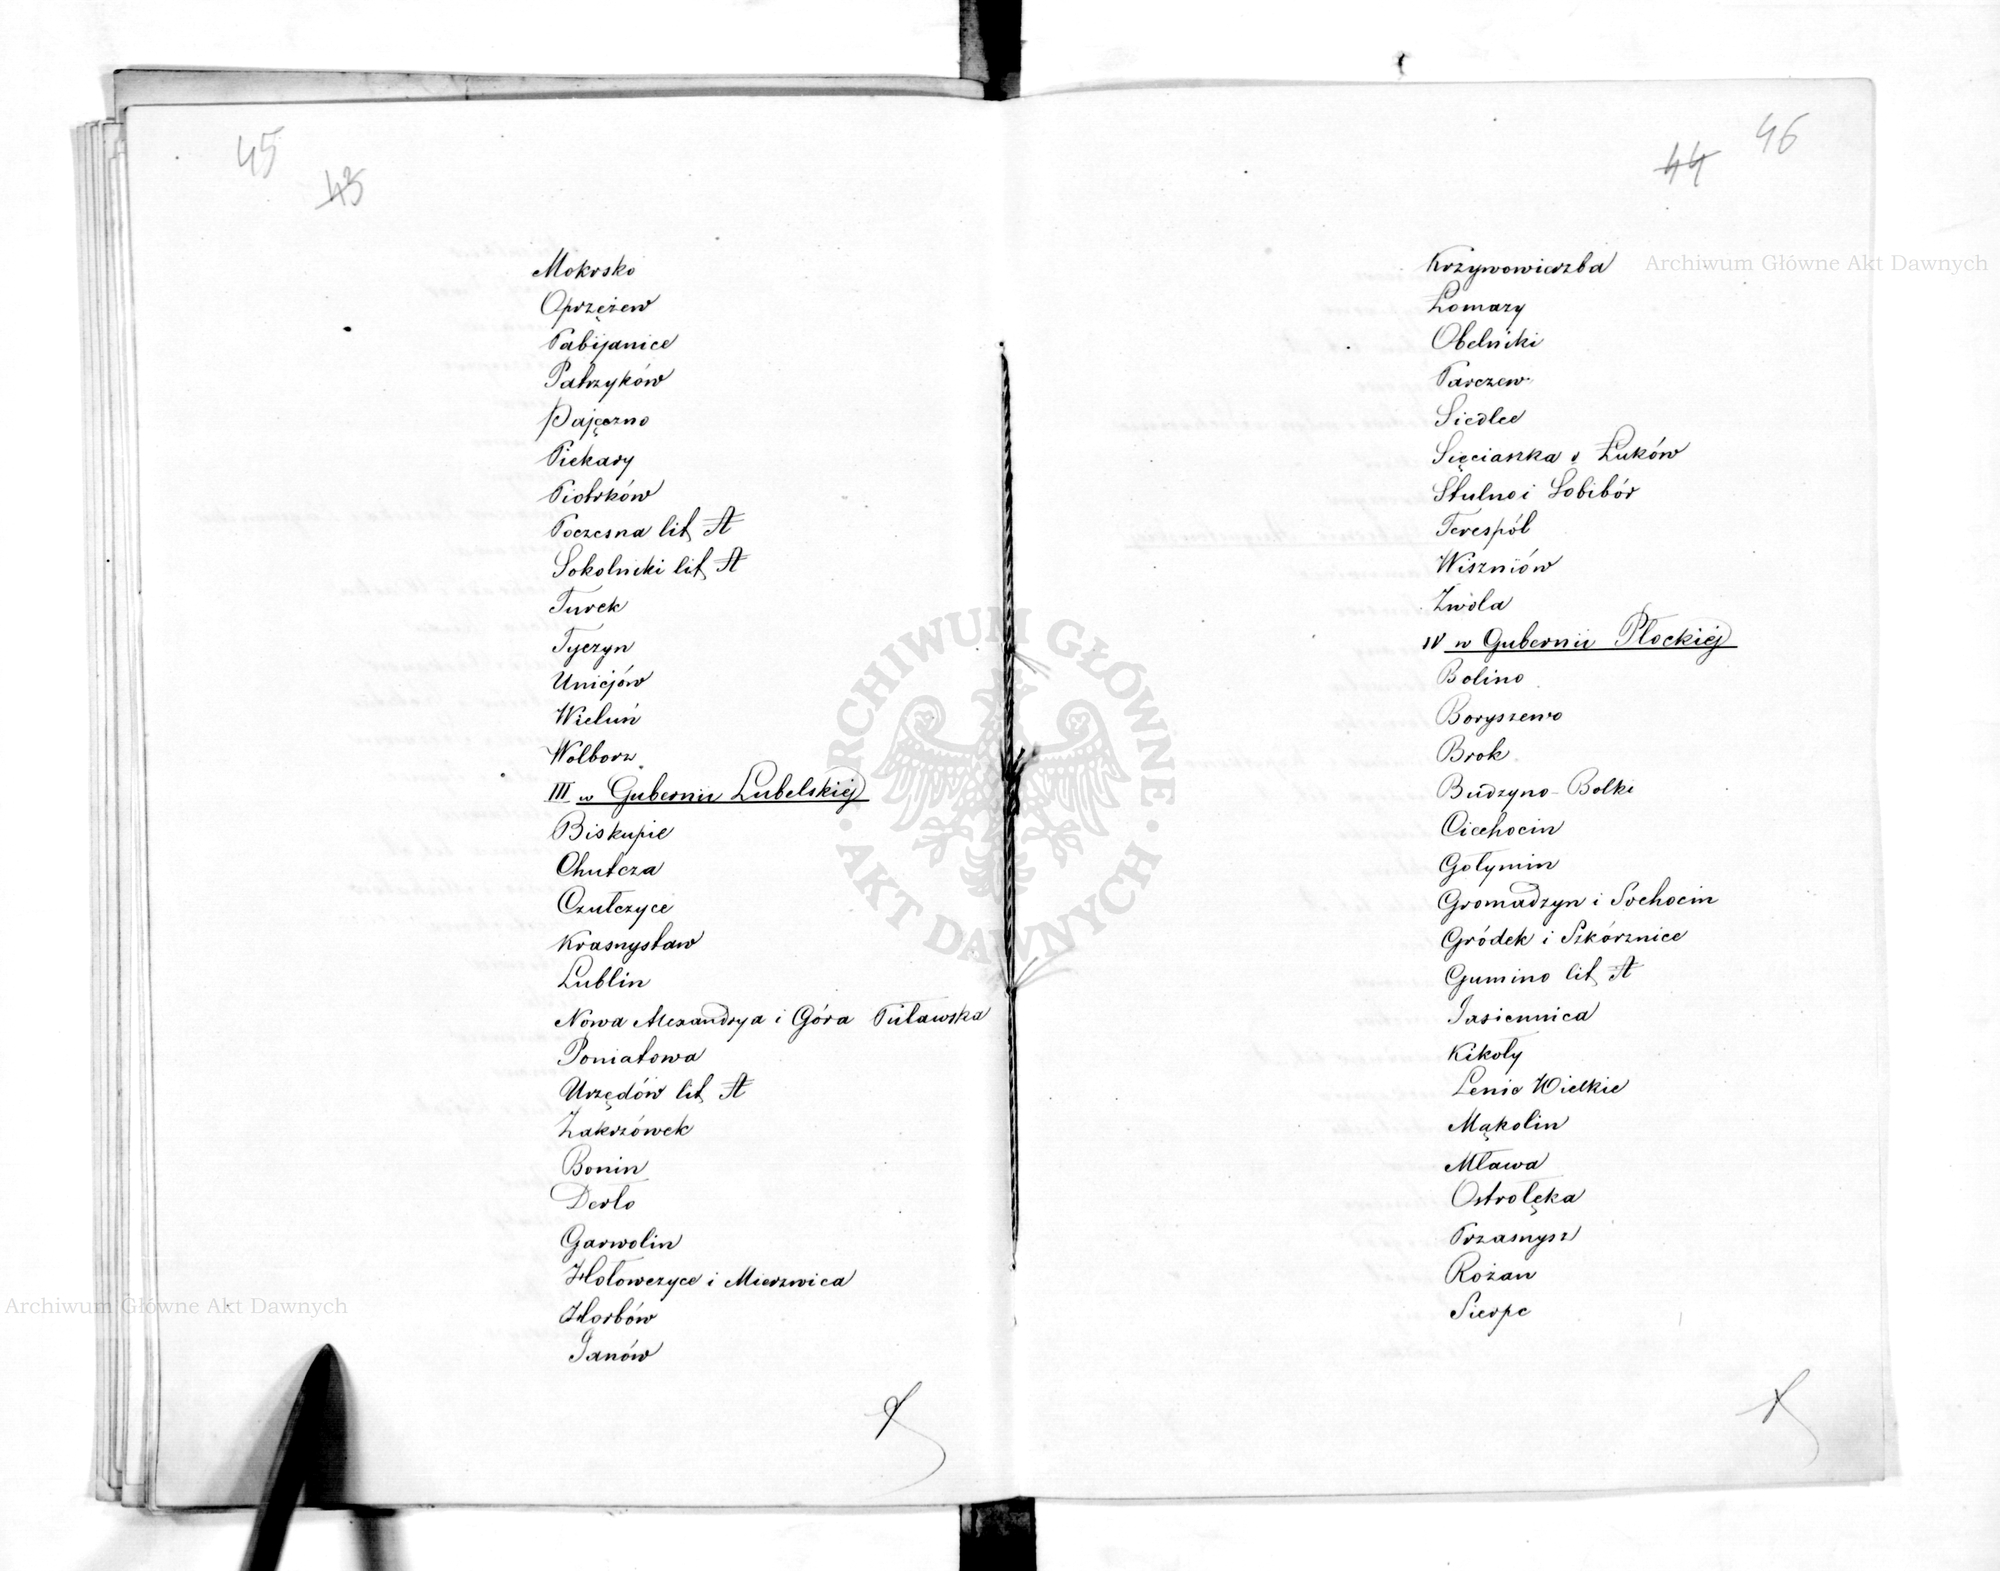 45
43
Mokrsko
Oprzężew
Pabijanice
Patrzyków
Pajęczno
Piekary
Piotrków
Poczesna lit. A
Sokolniki lit. A
Turek
Tyczyn
Uniejów
Wieluń
Wolborz
III w Gubernii Lubelskiéj
Biskupie
Chutcza
Czułczyce
Krasnystaw
Lublin
Nowa Alexandrya i Góra Puławska
Poniatowa
Urzędów lit. A
Zakrzówek
Bonin
Derło
Garwolin
Hołowczyce i Mierzwica
Horbów
Janów
46
44
Krzywowierzba
Łomazy
Obelniki
Parczew
Siedlce
Sięciaszka i Łuków
Stulno i Sobibór
Terespól
Wiszniów
Zwola
IV w Gubernii Płockiéj
Bolino
Boryszewo
Brok
Budzyno-Bolki
Ciechocin
Gołymin
Gromadzyn i Sochocin
Gródek i Szkórznice
Gumino lit. A
Jasiennica
Kikoły
Lenie Wielkie
Mąkolin
Mława
Ostrołęka
Przasnysz
Rożan
Sierpc
Archiwum Główne Akt Dawnych
ARCHIWUM GŁÓWNE · AKT DAWNYCH ·
Archiwum Główne Akt Dawnych